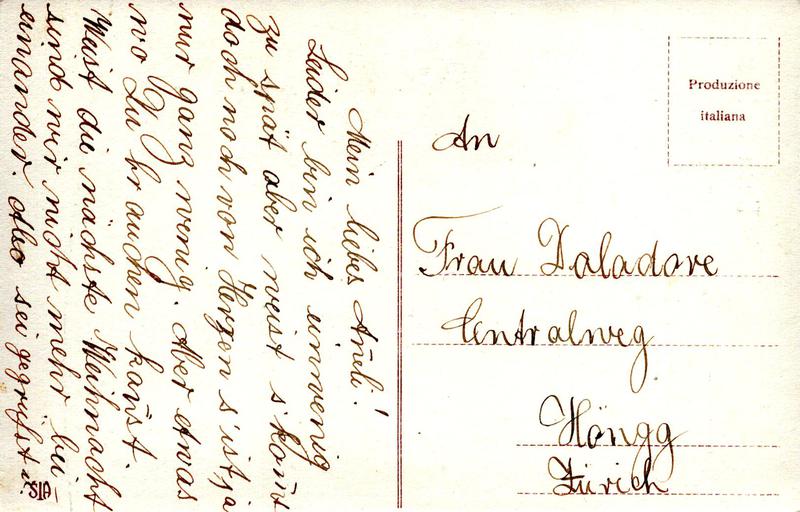 Mein liebes Anneli!
Leider bin ich einwenig
zu spät aber weist s'komt
doch noch von Herzen s'ist ja
nur ganz wenig. Aber etwas
wo Du brauchen kanst.
Weist du nächste Weihnacht
sind wir nicht mehr bei
einander. Also sei gegrüsst u.
SIA
Produzione
italiana
An
Frau Daladore
Centralweg
Höngg
Zürich